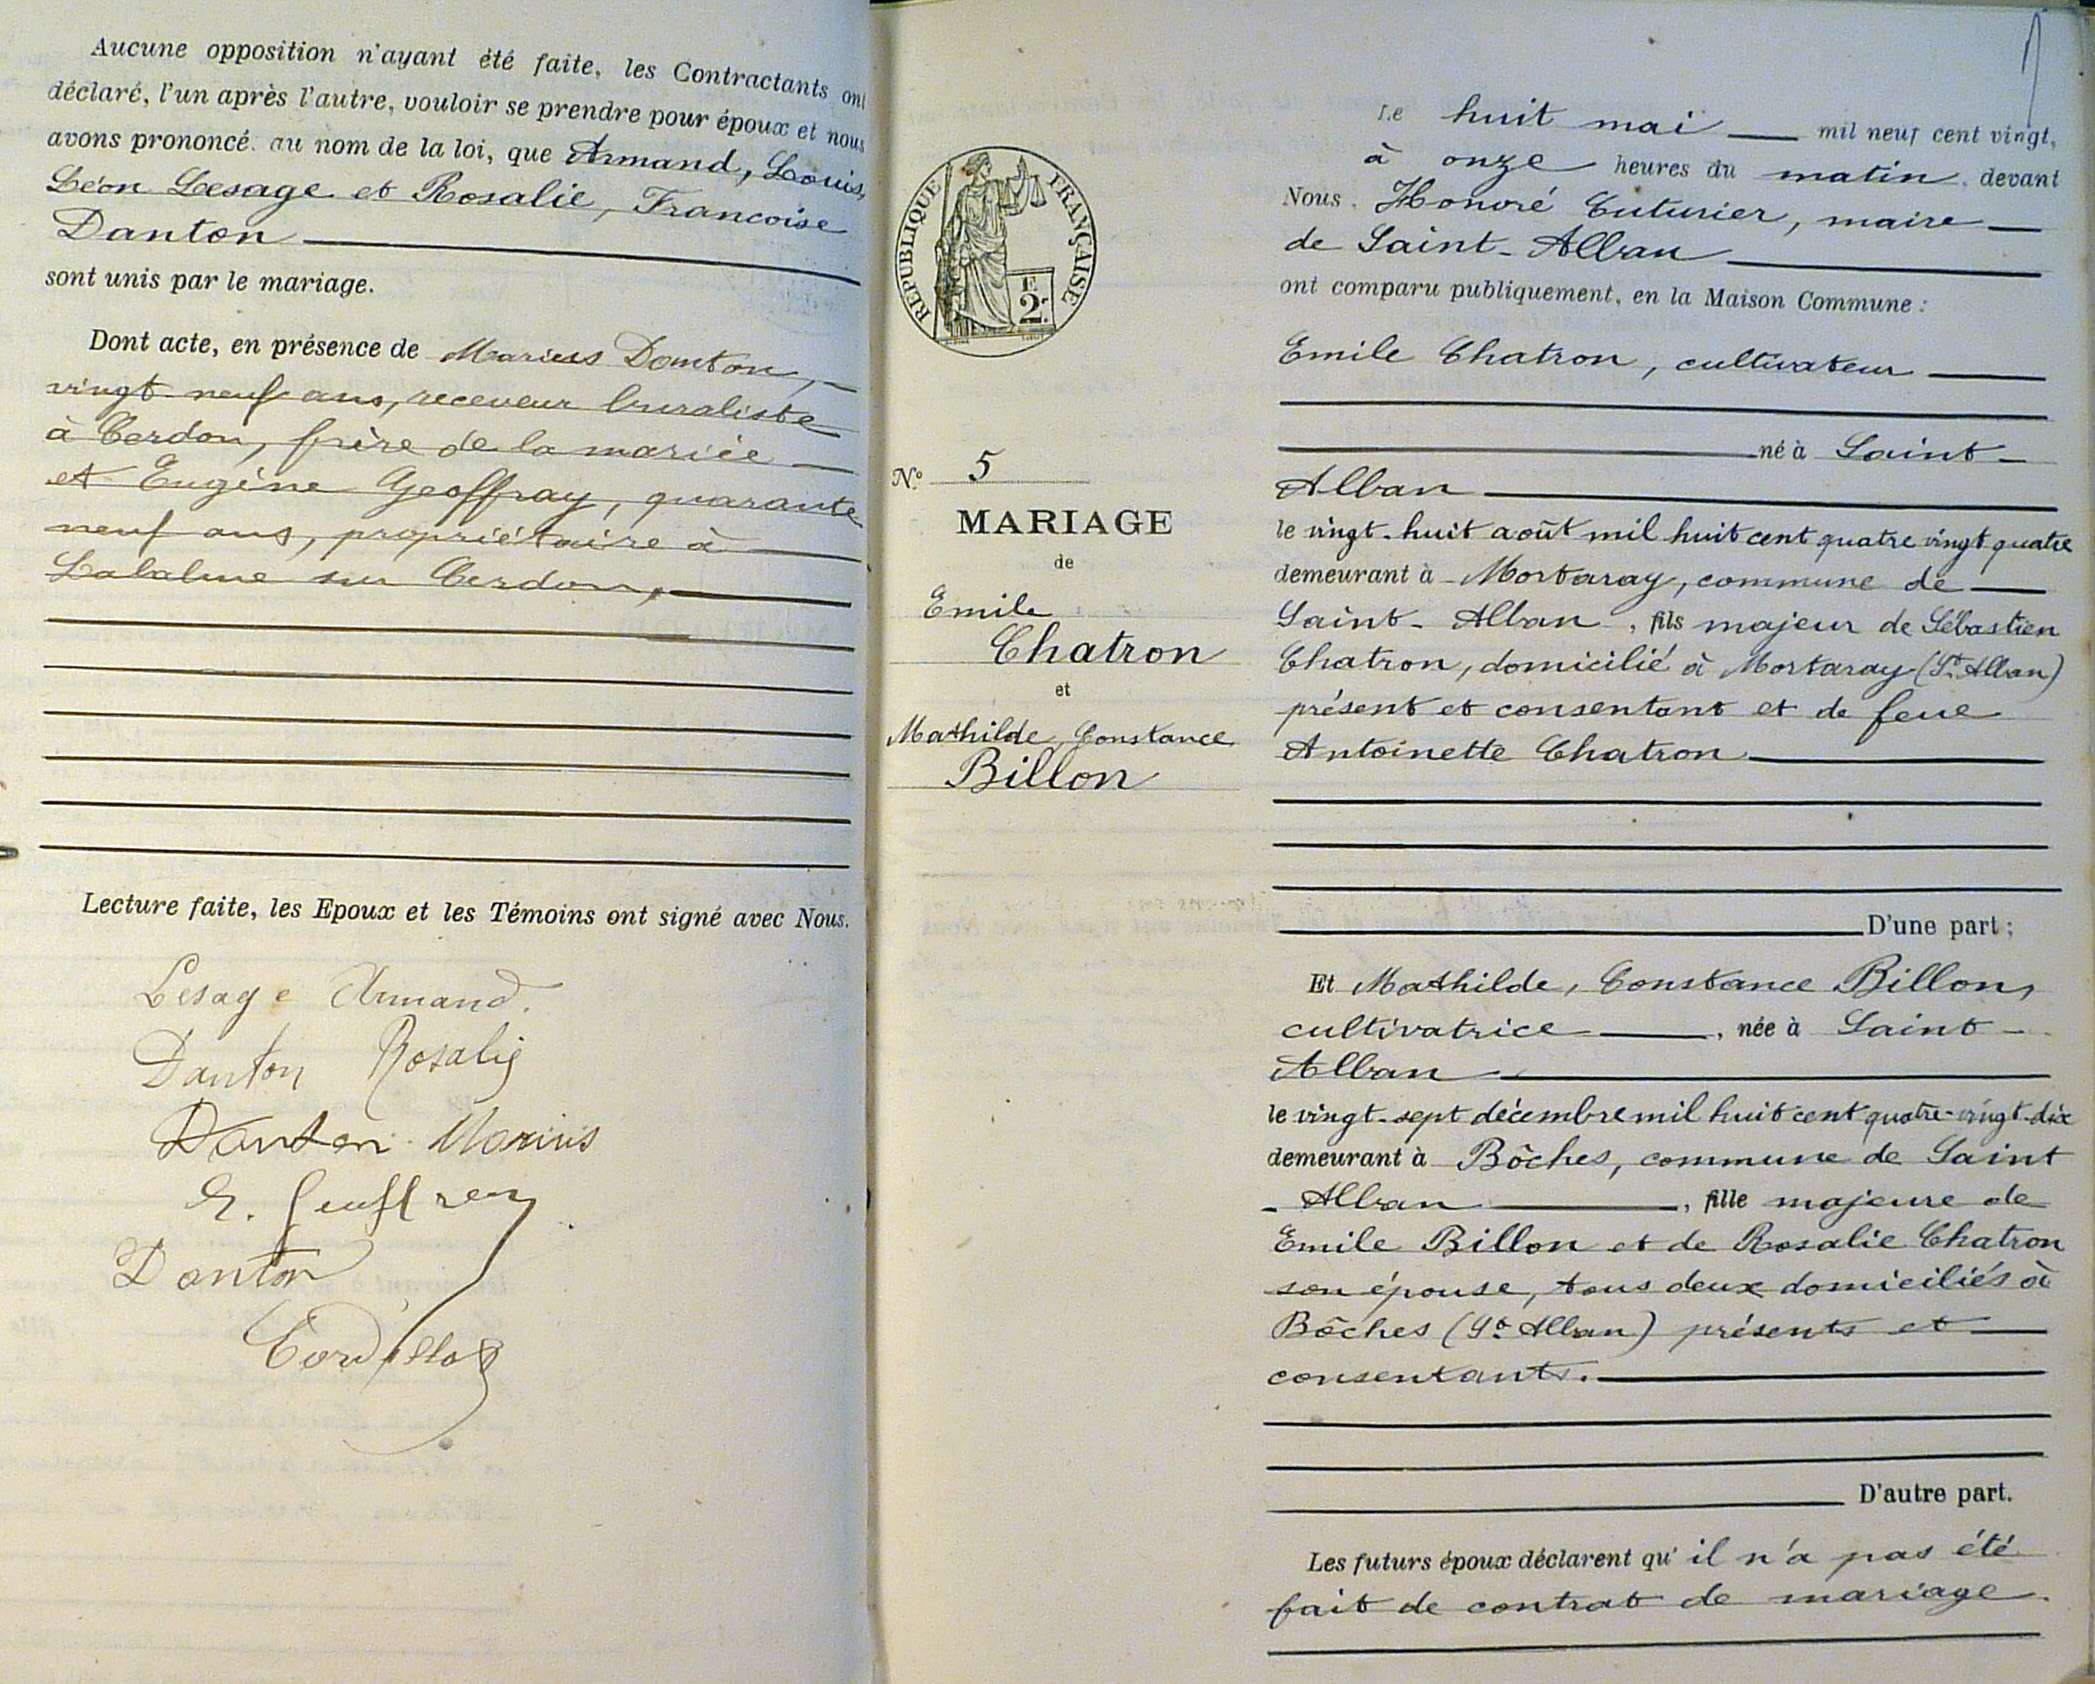 Aucune opposition n'ayant été faite, les Contractants ont
déclaré, l'un après l'autre, vouloir se prendre pour époux et nous
avons prononcé au nom de la loi, que Armand, Louis,
Léon Lesage et Rosalie, Francoise
Danton
sont unis par le mariage.
Dont acte, en présence de Marius Danton,
vingt neuf ans, receveur buraliste
à Cerdon, frère de la mariée
et Eugène Geoffray, quarante
neuf ans, propriétaire à
Labalme sur Cerdon,
Lecture faite, les Epoux et les Témoins ont signé avec Nous.
Lesage Armand.
Danton Rosalie
Danton Marius
Danton
RÉPUBLIQUE FRANÇAISE
2F
No 5
MARIAGE
de
Emile
Chatron
et
Mathilde, Constance
Billon
Le huit mai mil neuf cent vingt,
à onze heures du matin, devant
Nous, Honoré Cuturier, maire
de Saint-Alban
ont comparu publiquement, en la Maison Commune :
Emile Chatron, cultivateur
né à Saint-
Alban
le vingt-huit août mil huit cent quatre vingt quatre
demeurant à Mortaray, commune de
Saint-Alban, fils majeur de Sébastien
Chatron, domicilié à Mortaray (St Alban)
présent et consentant et de feue
Antoinette Chatron
D'une part ;
Et Mathilde, Constance Billon,
cultivatrice, née à Saint-
Alban
le vingt-sept décembre mil huit cent quatre-vingt-dix
demeurant à Bôches, commune de Saint
-Alban, fille majeure de
Emile Billon et de Rosalie Chatron
son épouse, tous deux domiciliés à
Bôches (St Alban) présents et
consentants.
D'autre part.
Les futurs époux déclarent qu'il n'a pas été
fait de contrat de mariage.